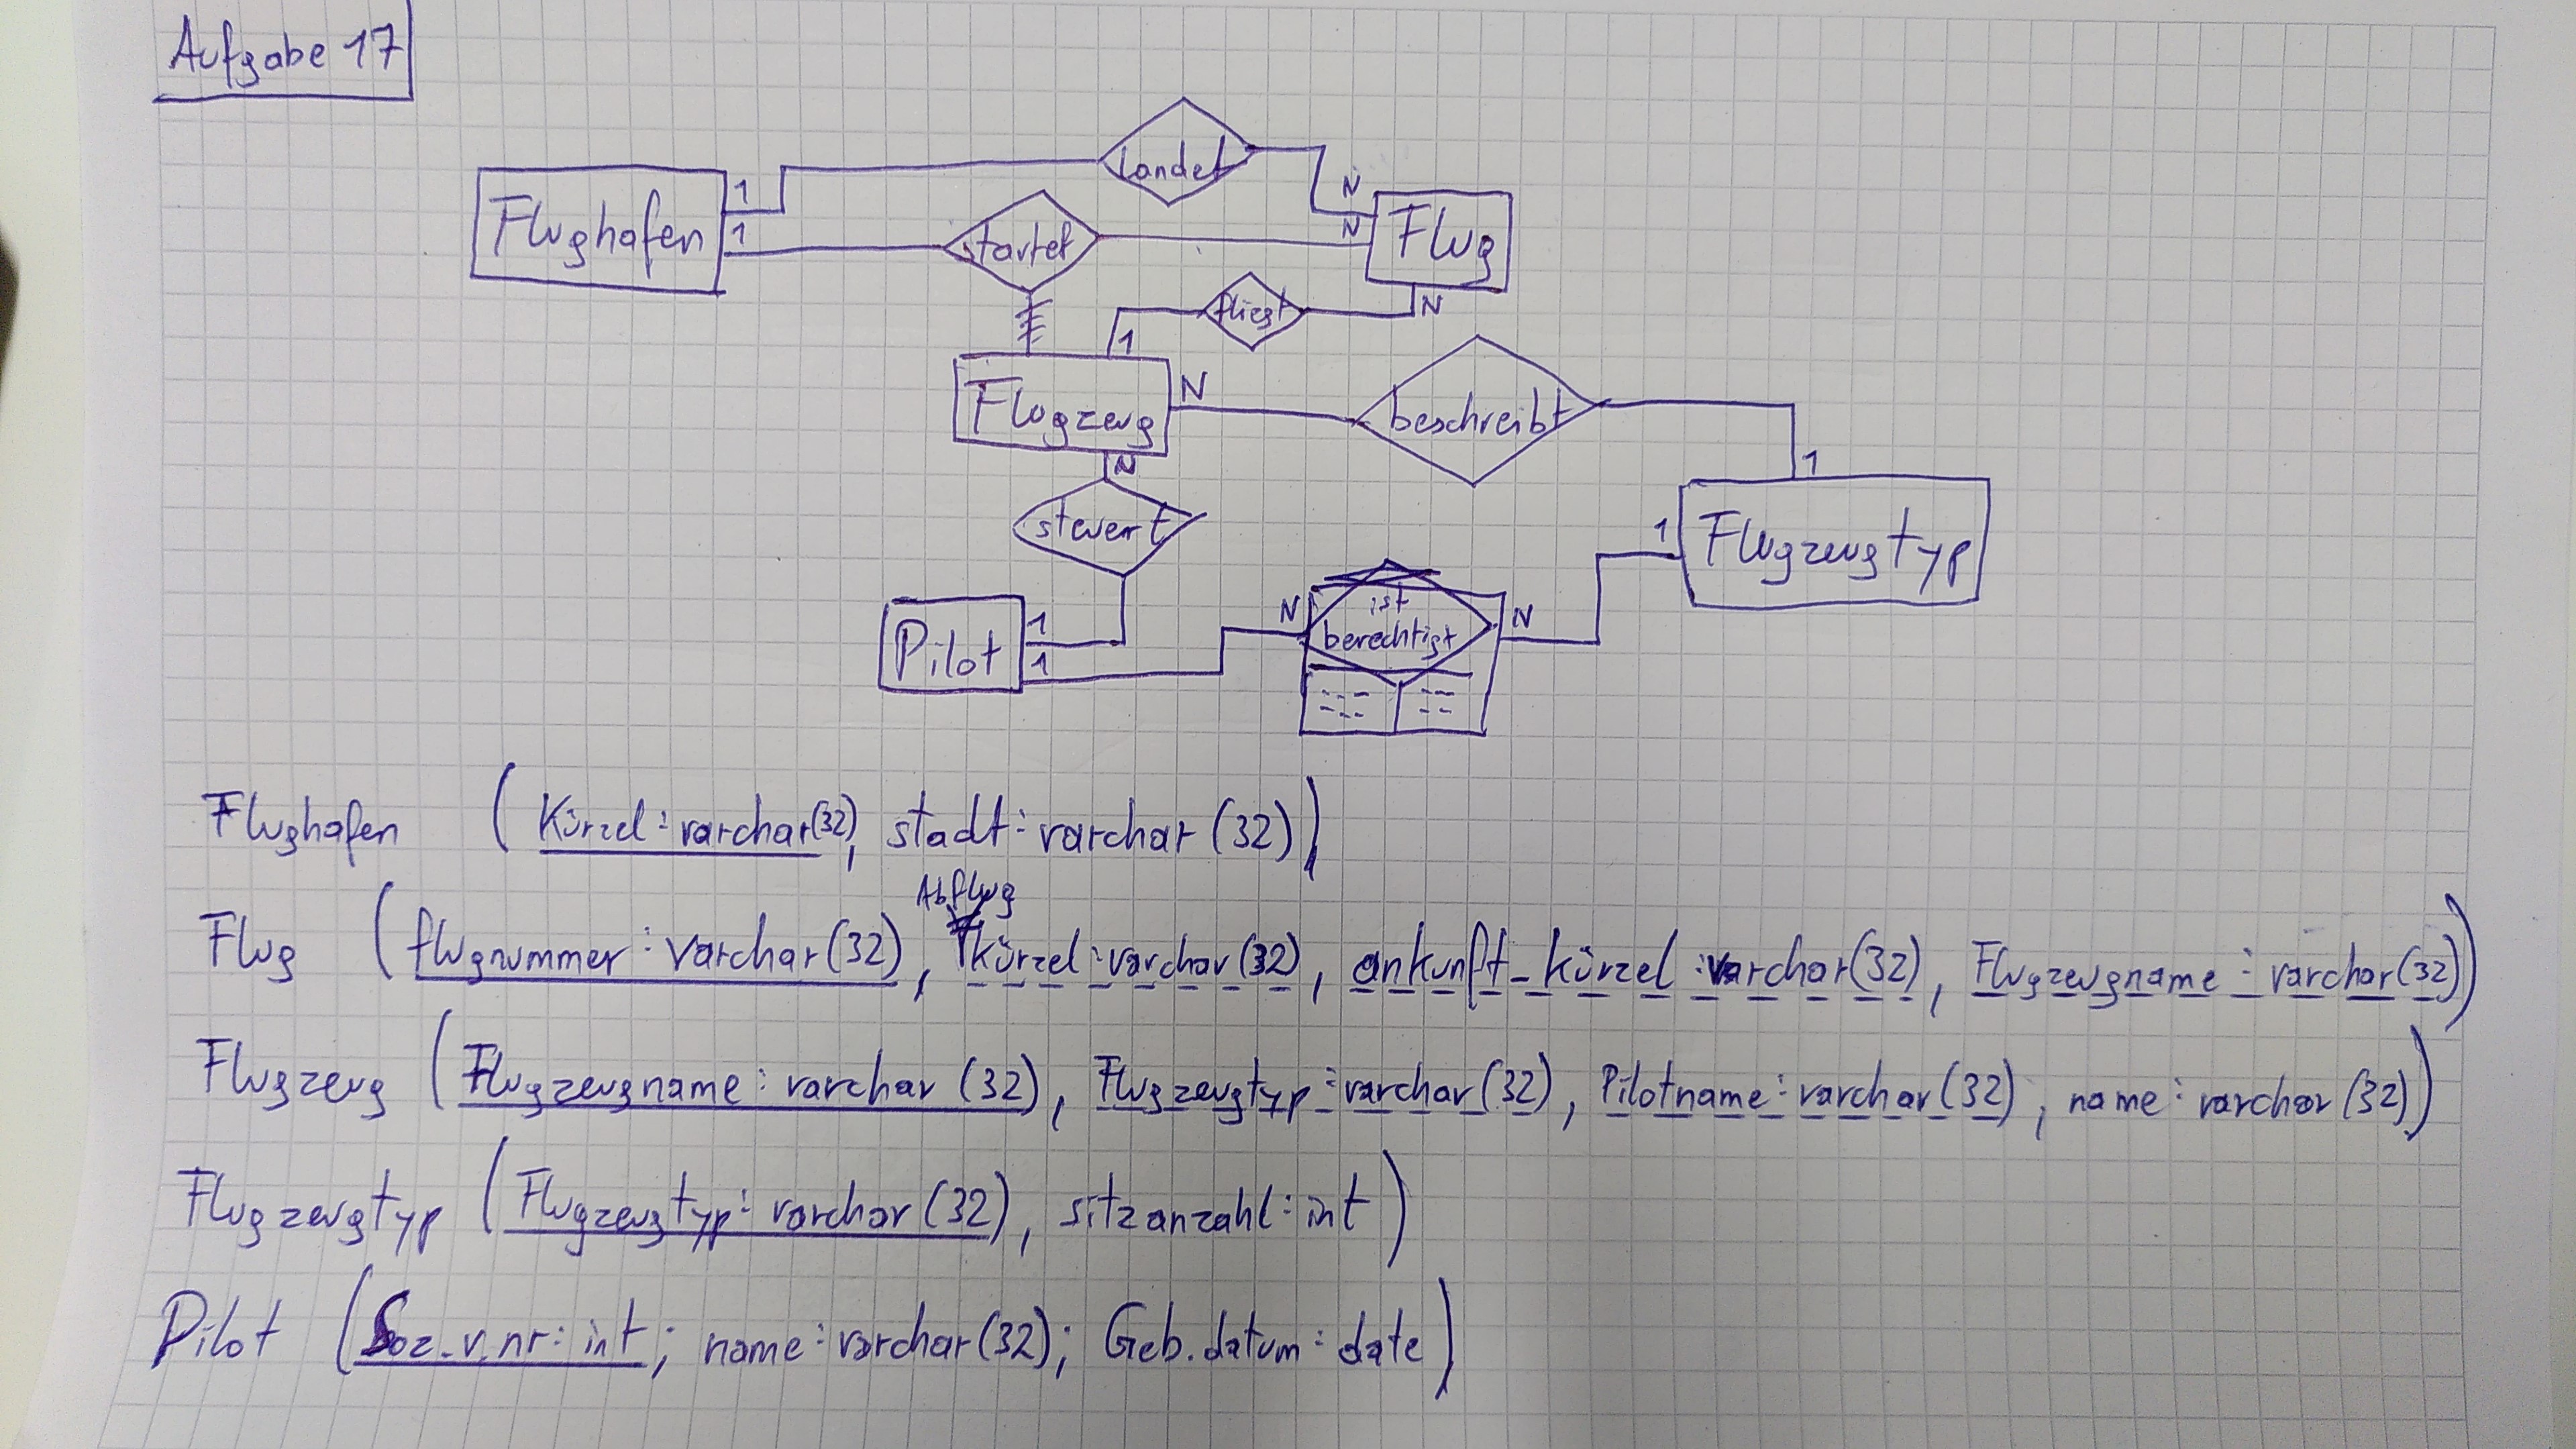 Aufgabe 17
landet
1 N
Flughafen startet Flug
1 N
fliegt
1 N
Flugzeug N beschreibt
N 1
steuert
1 Flugzeugtyp
Pilot 1 N ist berechtigt N
1
Flughafen (Kürzel: varchar(32), stadt: varchar (32))
Abflug
Flug (flugnummer: varchar (32), kürzel: varchar (32), ankunft_kürzel: varchar(32), Flugzeugname: varchar (32))
Flugzeug (Flugzeugname: varchar (32), Flugzeugtyp: varchar (32), Pilotname: varchar (32), name: varchar (32))
Flugzeugtyp (Flugzeugtyp: varchar (32), sitzanzahl: int)
Pilot (Soz.v.nr: int; name: varchar (32); Geb.datum: date)